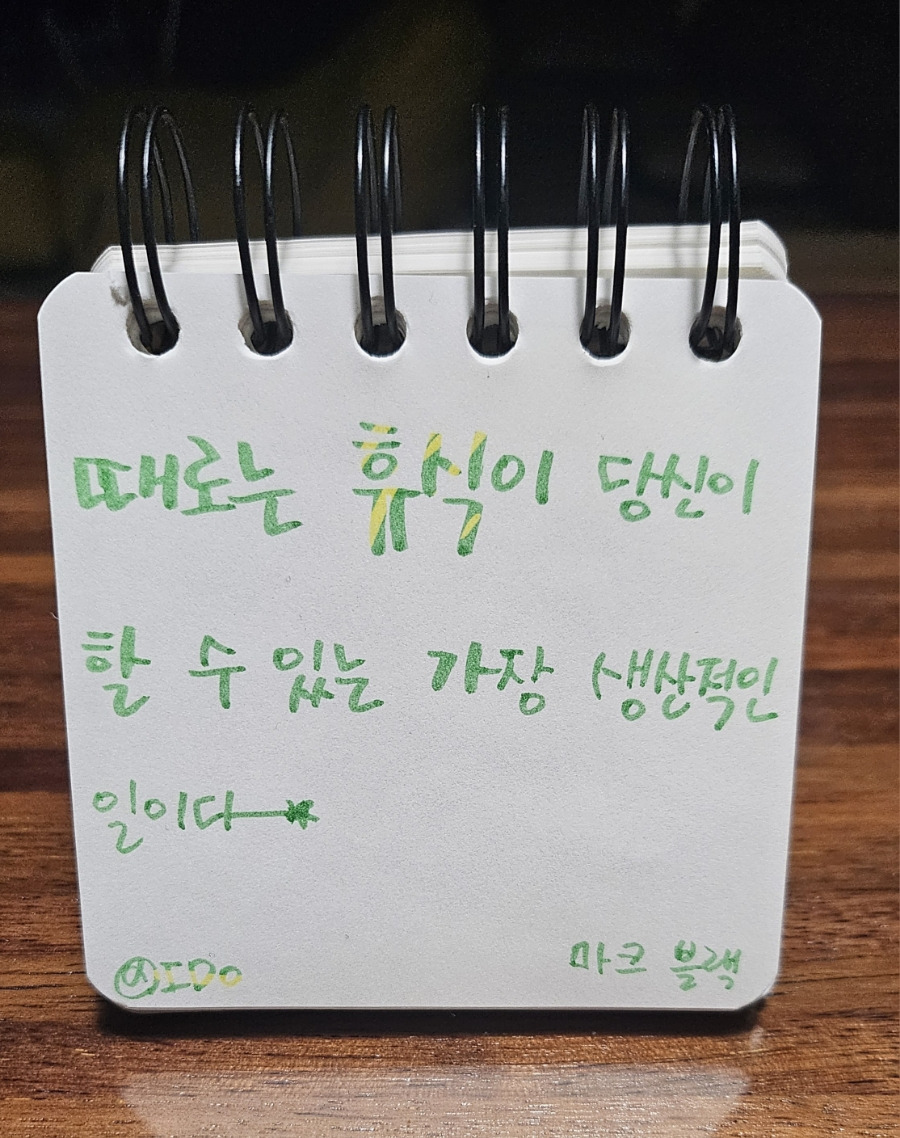 때로는 휴식이 당신이
할 수 있는 가장 생산적인
일이다
마크 블랙